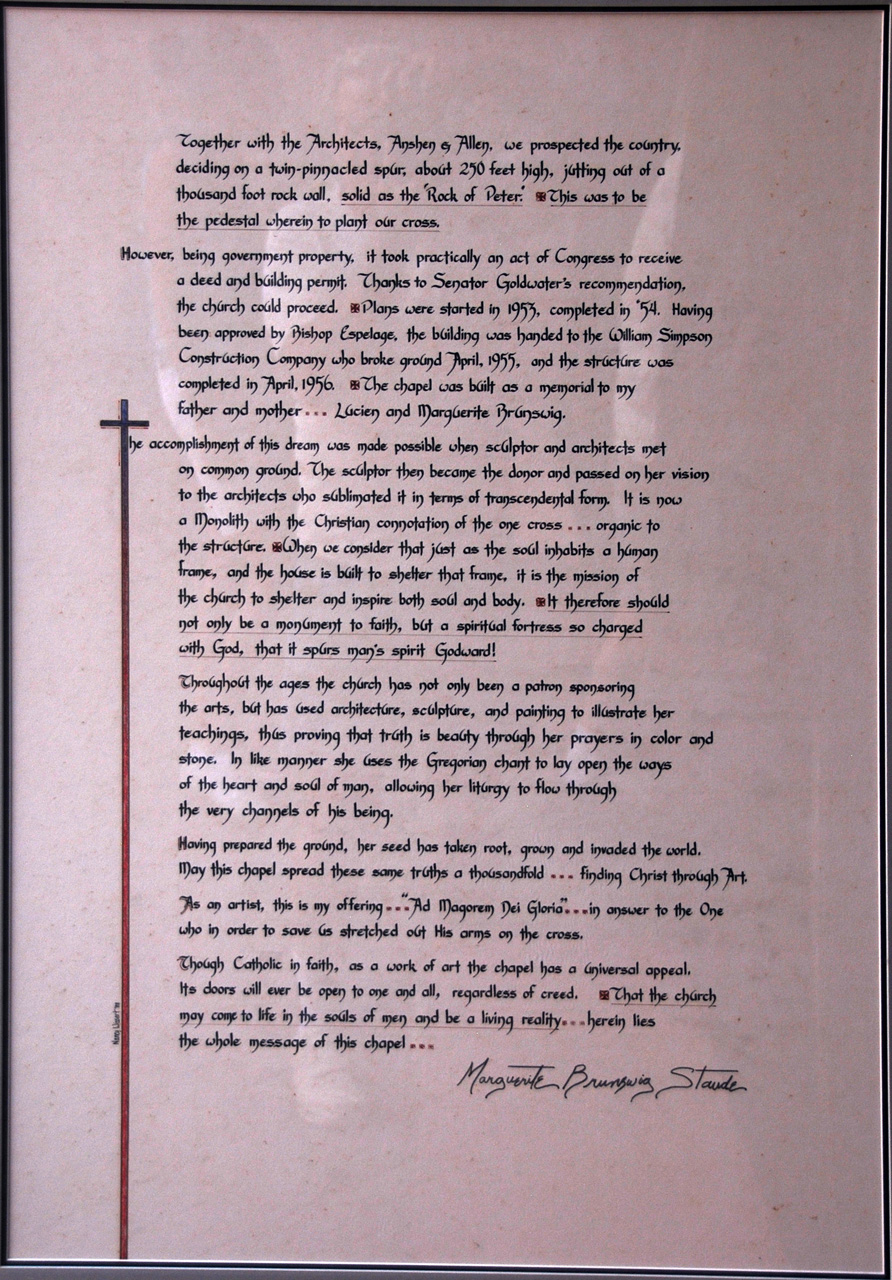 Together with the Architects, Anshen & Allen, we prospected the country,
deciding on a twin-pinnacled spur, about 250 feet high, jutting out of a
thousand foot rock wall, solid as the "Rock of Peter." This was to be
the pedestal wherein to plant our cross.
However, being government property, it took practically an act of Congress to receive
a deed and building permit. Thanks to Senator Goldwater's recommendation,
the church could proceed. Plans were started in 1953, completed in '54. Having
been approved by Bishop Espelage, the building was handed to the William Simpson
Construction Company who broke ground April, 1955, and the structure was
completed in April, 1956. The chapel was built as a memorial to my
father and mother... Lucien and Marguerite Brunswig.
The accomplishment of this dream was made possible when sculptor and architects met
on common ground. The sculptor then became the donor and passed on her vision
to the architects who sublimated it in terms of transcendental form. It is now
a Monolith with the Christian connotation of the one cross... organic to
the structure. When we consider that just as the soul inhabits a human
frame, and the house is built to shelter that frame, it is the mission of
the church to shelter and inspire both soul and body. It therefore should
not only be a monument to faith, but a spiritual fortress so charged
with God, that it spurs man's spirit Godward!
Throughout the ages the church has not only been a patron sponsoring
the arts, but has used architecture, sculpture, and painting to illustrate her
teachings, thus proving that truth is beauty through her prayers in color and
stone. In like manner she uses the Gregorian chant to lay open the ways
of the heart and soul of man, allowing her liturgy to flow through
the very channels of his being.
Having prepared the ground, her seed has taken root, grown and invaded the world.
May this chapel spread these same truths a thousandfold... finding Christ through Art.
As an artist, this is my offering..."Ad Magorem Dei Gloria"...in answer to the One
who in order to save us stretched out His arms on the cross.
Though Catholic in faith, as a work of art the chapel has a universal appeal.
Its doors will ever be open to one and all, regardless of creed. That the church
may come to life in the souls of men and be a living reality...herein lies
the whole message of this chapel...
Marguerite Brunswig Staude